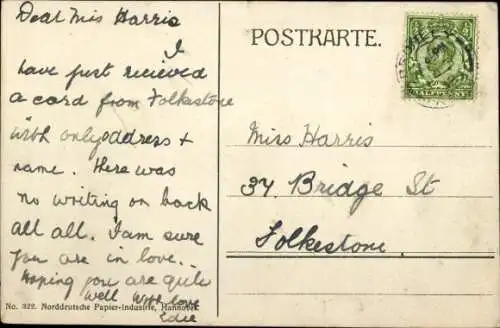 Dear Mis Harris
I
have just recieved
a card from Folkestone
with only address +
name. There was
no writing on back
all all. I am sure
you are in love.
Hoping you are quite
well with love
Edie
No. 322. Norddeutsche Papier-Industrie, Hannover.
POSTKARTE.
HALFPENNY
Miss Harris
34 Bridge St
Folkestone